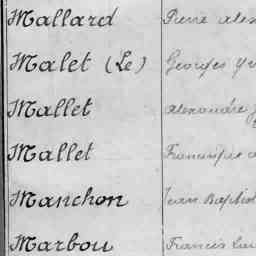 Mallard Pierre
Malet (Le) Georges
Mallet Alexandre
Mallet
Manchon Jean Baptist
Marbou Francis